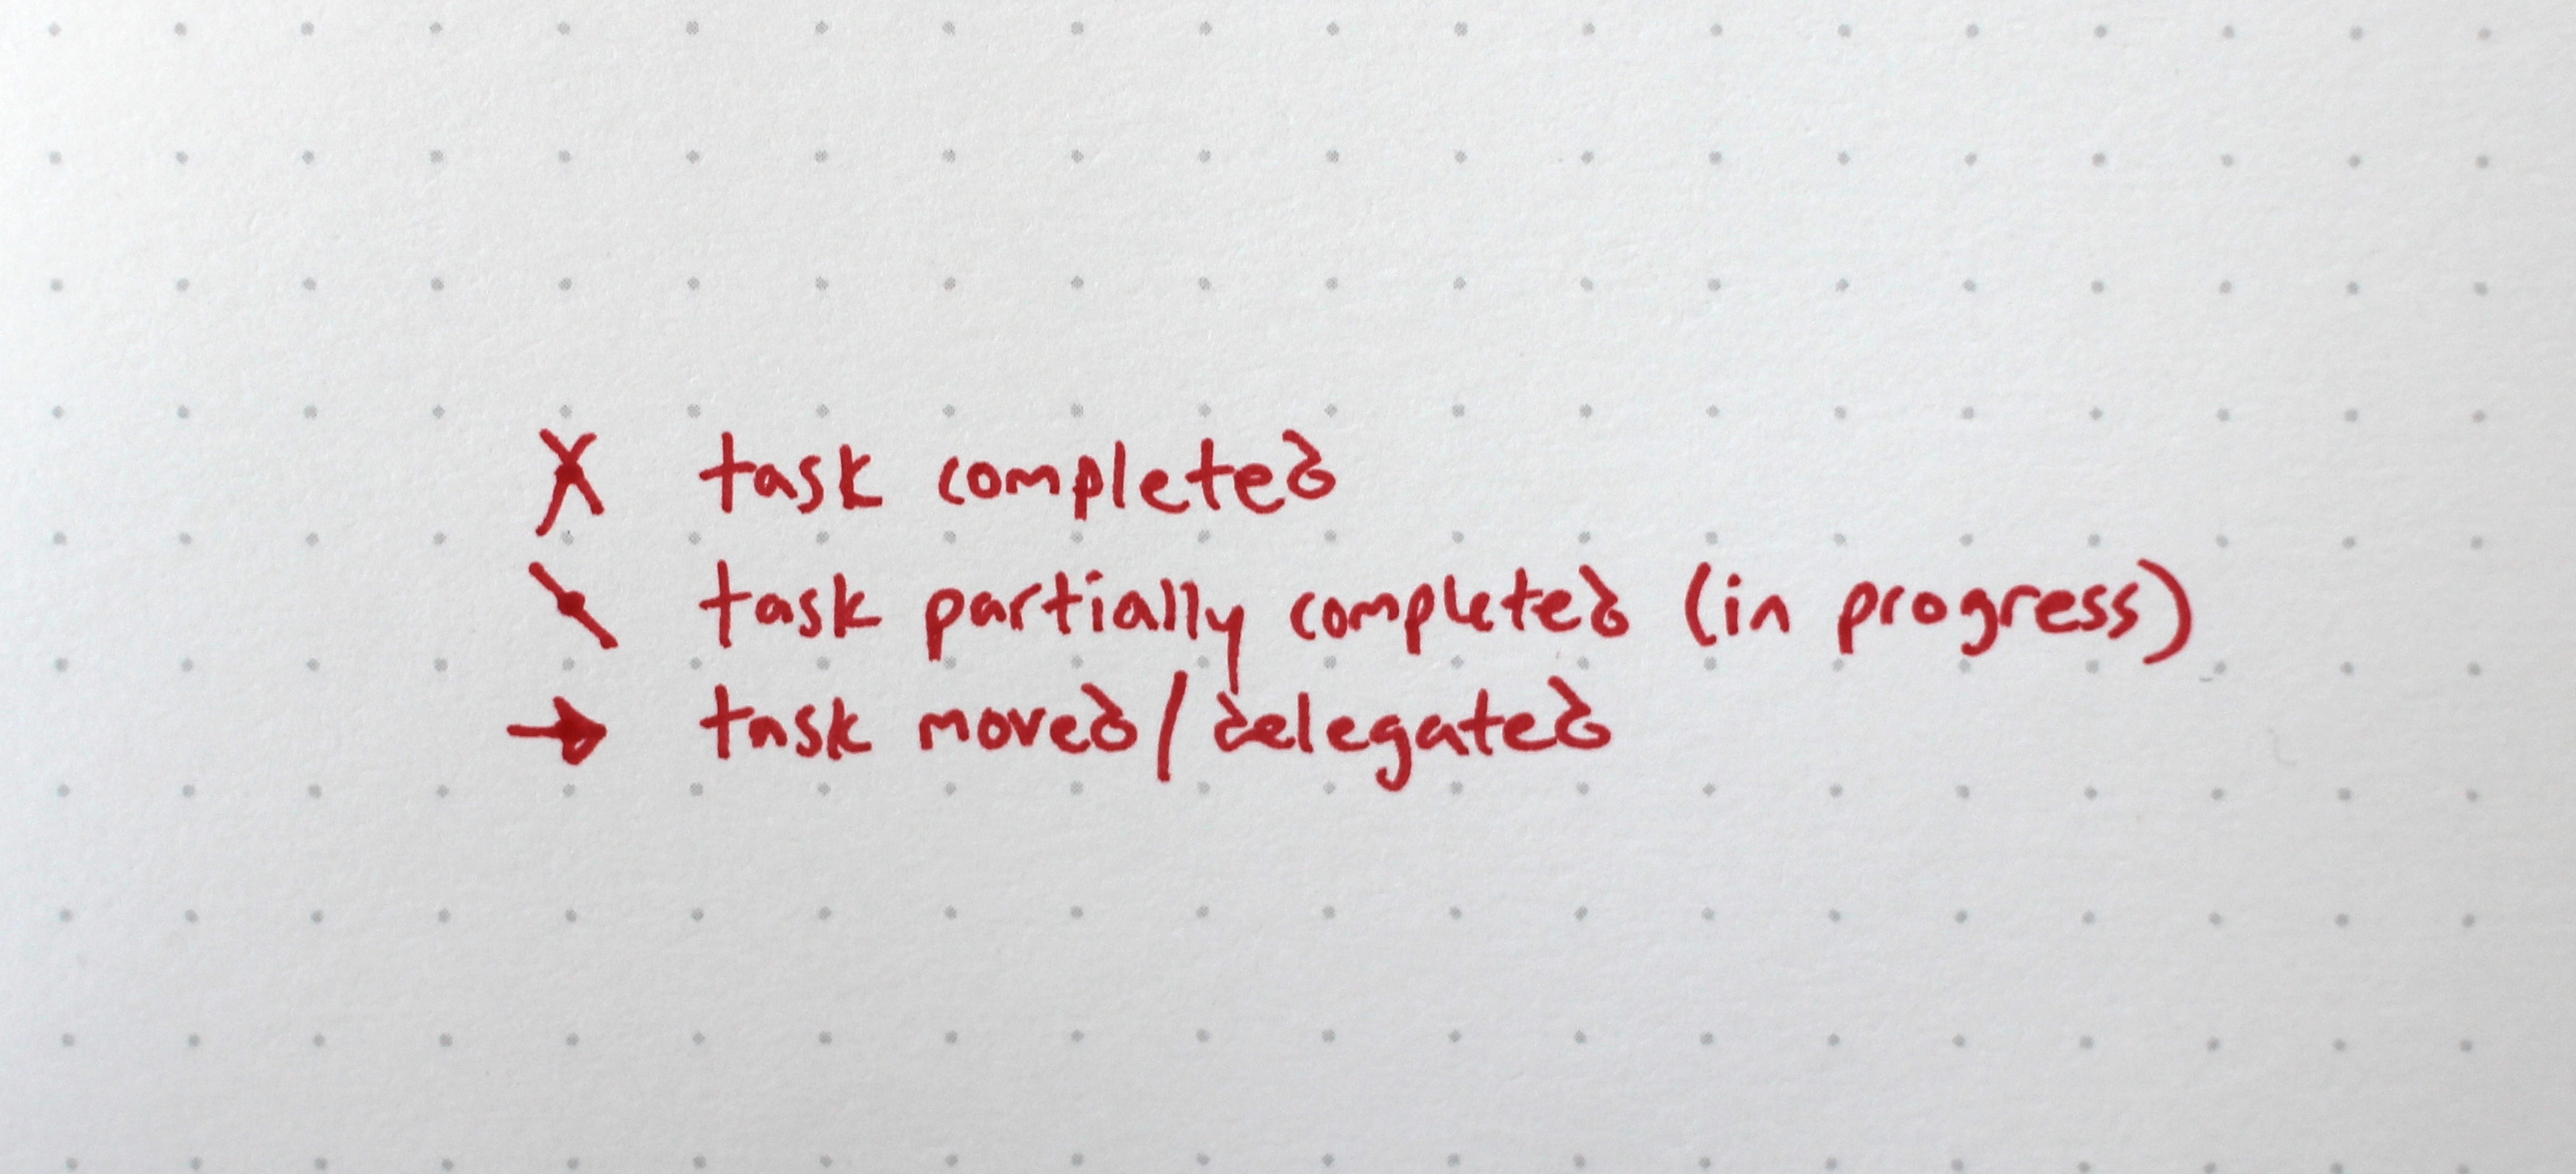 X task completed
\ task partially completed (in progress)
→ task moved/delegated